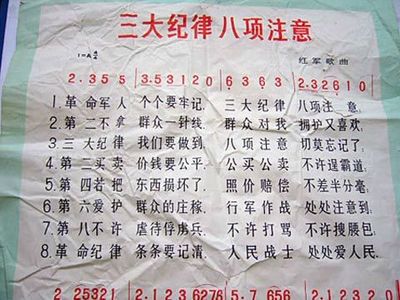 三大纪律八项注意
1=A 4/4
红军歌曲
2.355 3.53120 6363 2.32610
1.革命军人 个个要牢记. 三大纪律 八项注意.
2.第二不拿 群众一针线. 群众对我 拥护又喜欢;
3.三大纪律 我们要做到. 八项注意 切莫忘记了;
4.第二买卖 价钱要公平. 公买公卖 不许逞霸道;
5.第四若把 东西损坏了. 照价赔偿 不差半分毫;
6.第六爱护 群众的庄稼. 行军作战 处处注意到;
7.第八不许 虐待俘虏兵. 不许打骂 不许搜腰包;
8.革命纪律 条条要记清. 人民战士 处处爱人民.
2 25321 2.1236276 5.7656 2.1230